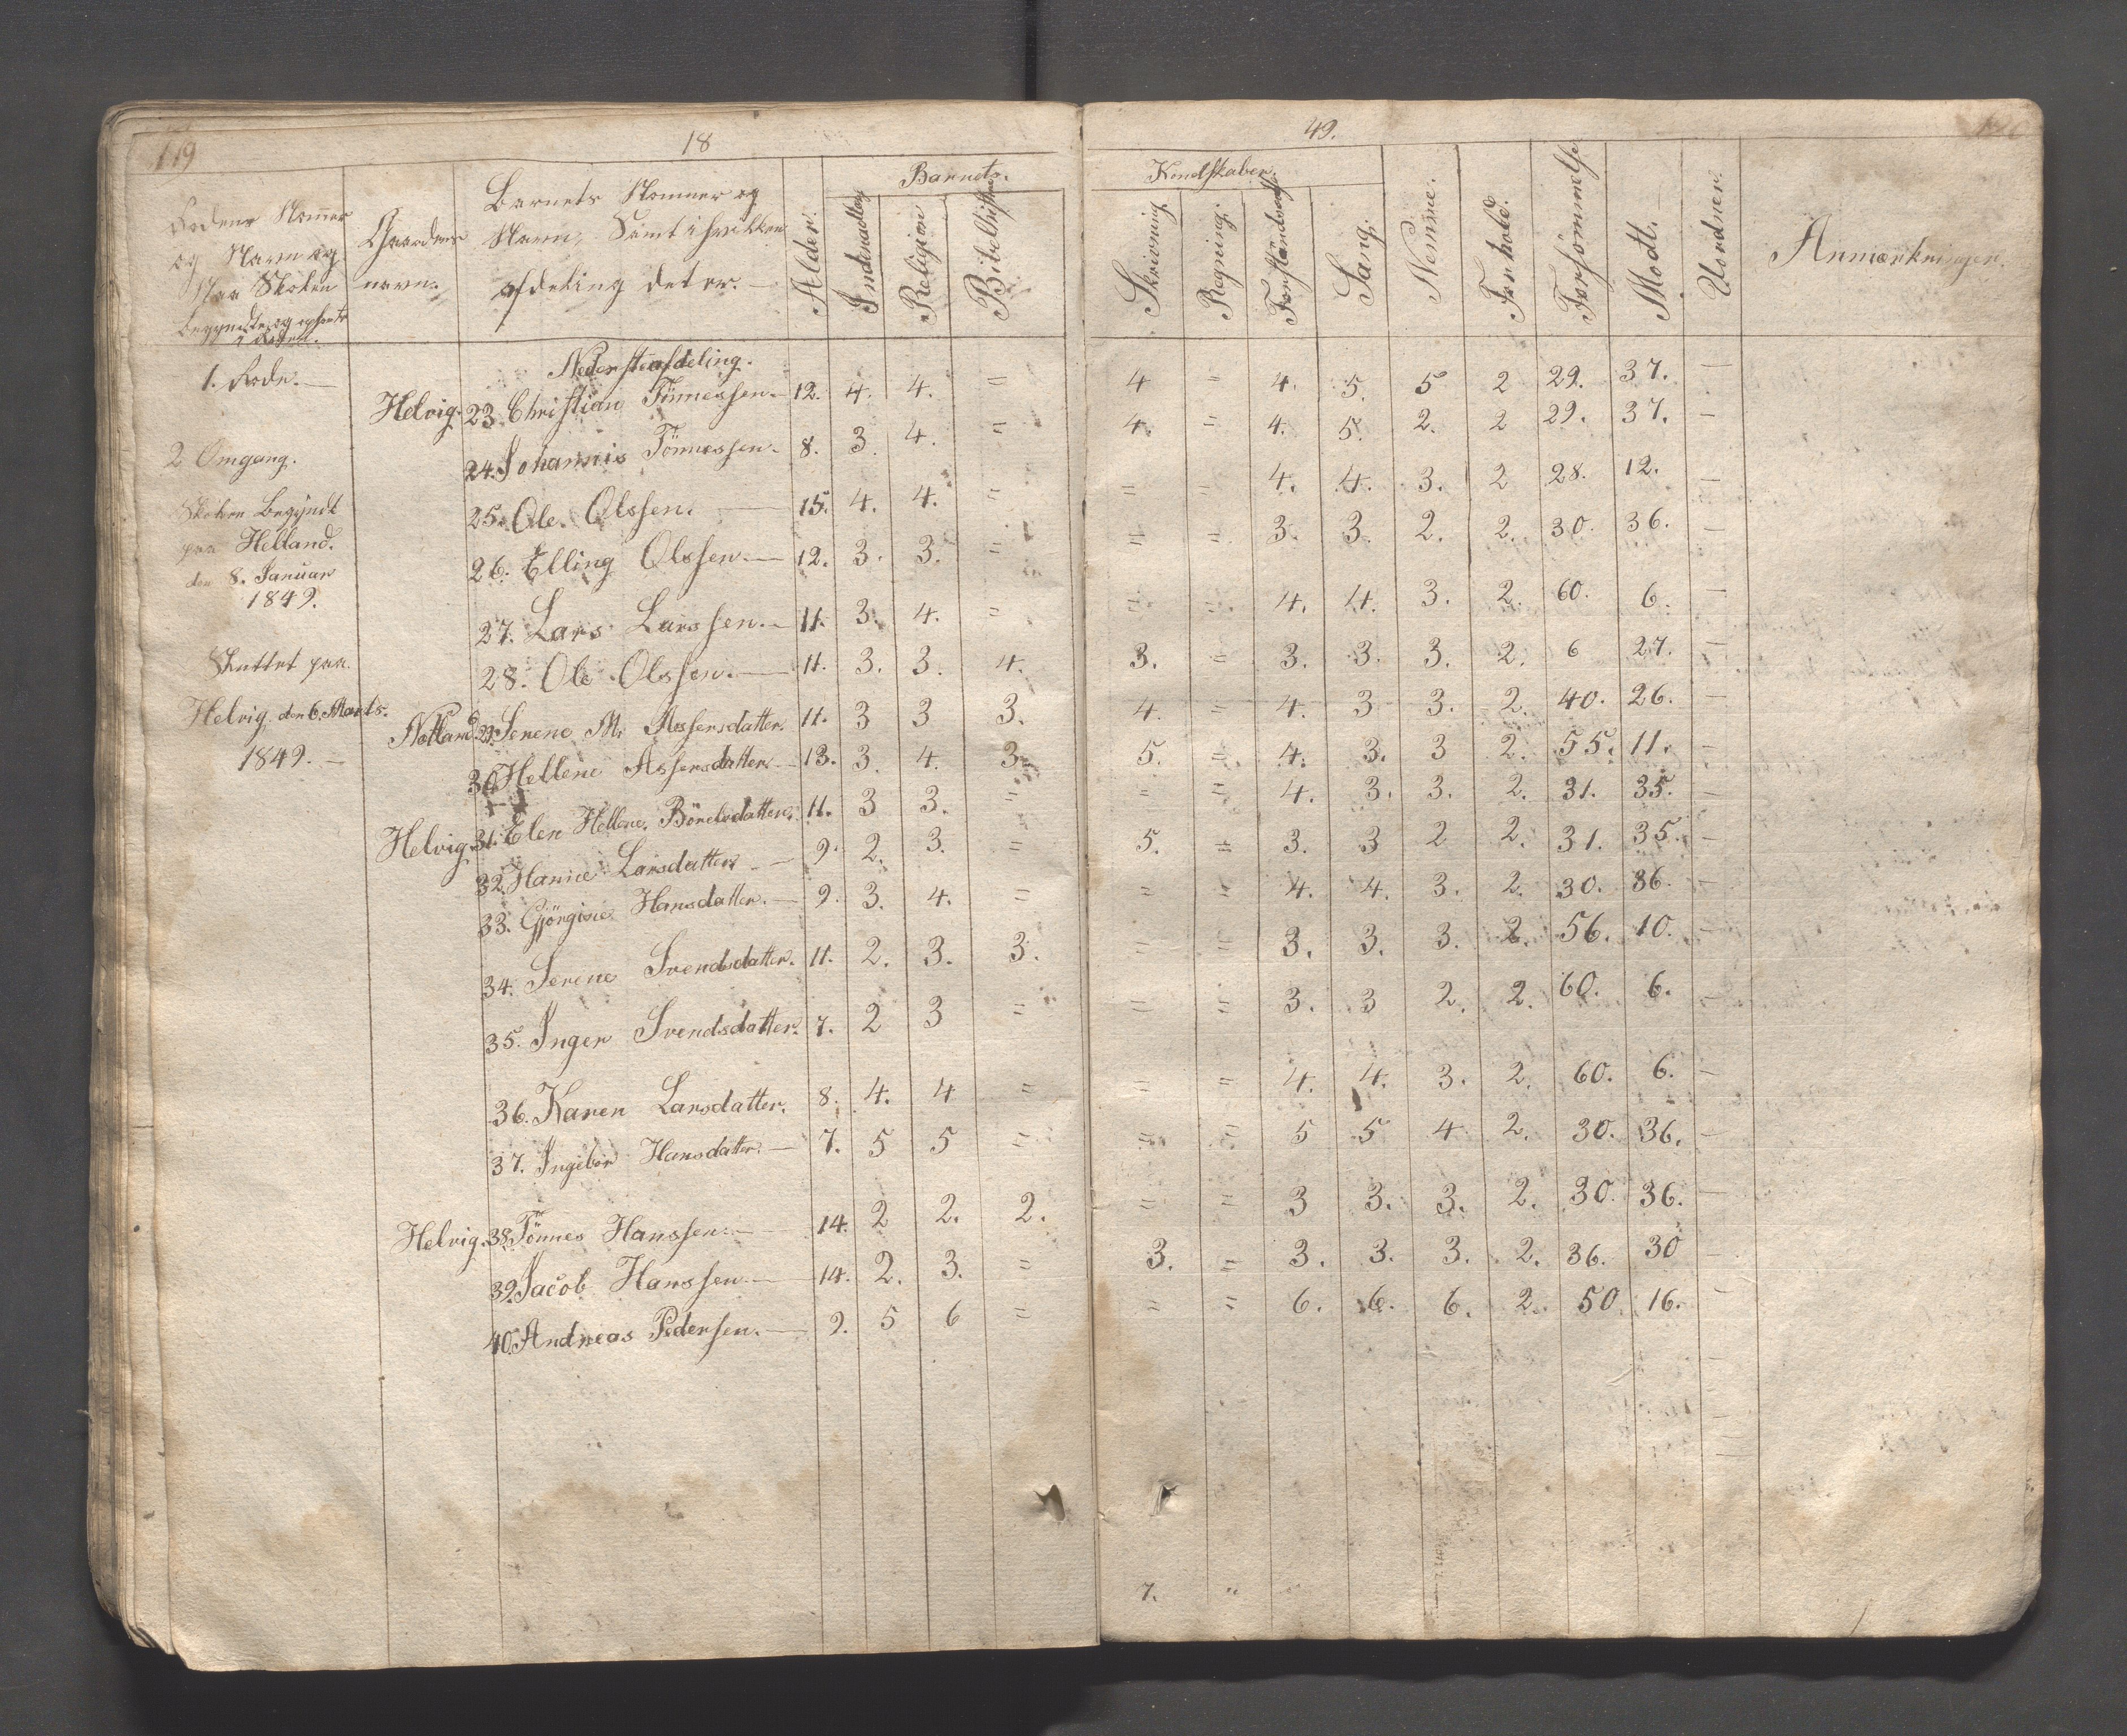 119
18
49.
Rodens Nommer og Navn og Naar Skolen begyndte og ophørte i Roden.
Gaardens navn.
Barnets Nommer og Navn, Samt i hvilken afdeling det er. —
Alder.
Barnets.
Kundskaber.
Indenadlæs
Religion
Bibelhistorie
Skrivning
Regning.
Forstandsøvelse
Sang.
Nemme.
Forhold.
Forsömmelse
Modt.
Uordner.
Anmærkninger.
Nedersteafdeling.
1. Rode. —
Helvig. 23. Christian Tönnessen. — 12. 4. 4. = 4 = 4. 5. 5 2 29. 37. —
2 Omgang.
24. Johannis Tönnessen. 8. 3. 4. = 4. = 4. 5. 2. 2 29. 37. —
Skolen Begyndt
25. Ole. Olssen. — 15. 4. 4. = = = 4. 4. 3. 2 28. 12. —
paa Helland.
26. Elling Olssen. — 12. 3. 3. = = = 3. 3. 2. 2. 30. 36. —
den 8. Januar
1849.
27. Lars Larssen. — 11. 3. 4. = = = 4. 4. 3. 2. 60. 6. —
Sluttet paa.
28. Ole Olssen. — 11. 3. 3. 4. 3. = 3. 3. 3. 2. 6 27. —
Helvig. den 6. Marts.
Nøtland 29. Serene M. Assersdatter. 11. 3 3 3. 4. = 4. 3 3. 2. 40. 26. —
1849. —
30. Hellene Assersdatter. — 13. 3. 4. 3. 5. = 4. 3. 3 2. 55. 11. —
Helvig. 31. Elen Hellene. Börelsdatter. 11. 3 3. = = = 4. 3. 3. 2. 31. 35. —
32. Hanne Larsdatter. — 9. 2. 3. = 5. = 3. 3 2 2. 31. 35. —
33. Gjörgine Hansdatter. — 9. 3. 4. = = = 4. 4. 3. 2. 30. 36. —
34. Serene Svendsdatter. 11. 2. 3. 3. = = 3. 3. 3. 2. 56. 10. —
35. Inger Svendsdatter. 7. 2 3 = = = 3. 3 2. 2. 60. 6. —
36. Karen Larsdatter. 8. 4. 4 = = = 4. 4. 3. 2. 60. 6. —
37. Ingebor Hansdatter. — 7. 5 5 = = = 5 5 4 2. 30. 36. —
Helvig. 38. Tönnes Hanssen. — 14. 2 2. 2. = = 3 3. 3. 2. 30. 36. —
39. Jacob Hanssen. — 14. 2. 3. = 3. = 3. 3. 3. 2. 36. 30 —
40. Andreas Pedersen. — 9. 5 6 = = = 6. 6. 6. 2. 50. 16. —
7. "